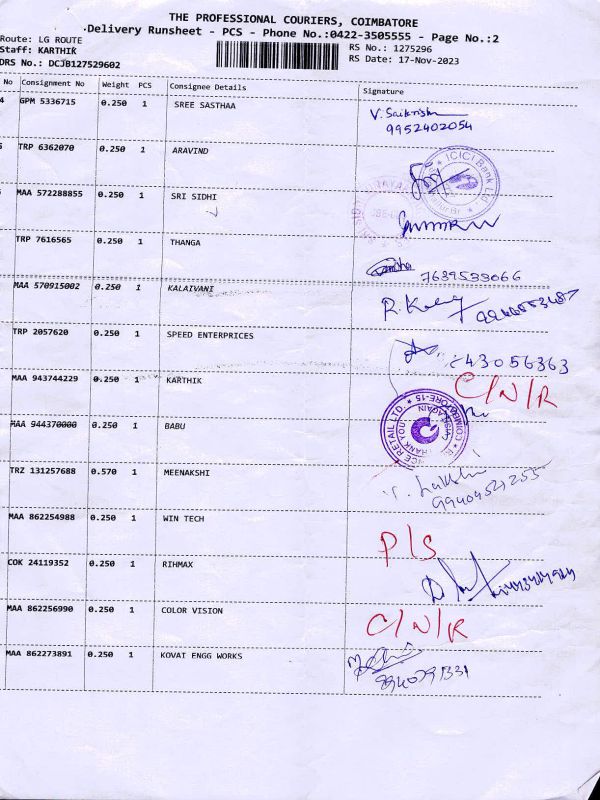 THE PROFESSIONAL COURIERS, COIMBATORE
Delivery Runsheet - PCS - Phone No.:0422-3505555 - Page No.:2
Route: LG ROUTE
RS No.: 1275296
Staff: KARTHIK
RS Date: 17-Nov-2023
DRS No.: DCJB127529602
No Consignment No Weight PCS Consignee Details Signature
4 GPM 5336715 0.250 1 SREE SASTHAA
9952402054
TRP 6362070 0.250 1 ARAVIND
ICICI Bank Ltd
MAA 572288855 0.250 1 SRI SIDHI
TRP 7616565 0.250 1 THANGA
7639533066
MAA 570915002 0.250 1 KALAIVANI
R.
TRP 2057620 0.250 1 SPEED ENTERPRICES
43056363
MAA 943744229 0.250 1 KARTHIK
C/N/R
MAA 944370000 0.250 1 BABU
RETAIL LTD. * COIMBATORE-15
THANK YOU
TRZ 131257688 0.570 1 MEENAKSHI
MAA 862254988 0.250 1 WIN TECH
P/S
COK 24119352 0.250 1 RIHMAX
MAA 862256990 0.250 1 COLOR VISION
C/N/R
MAA 862273891 0.250 1 KOVAI ENGG WORKS